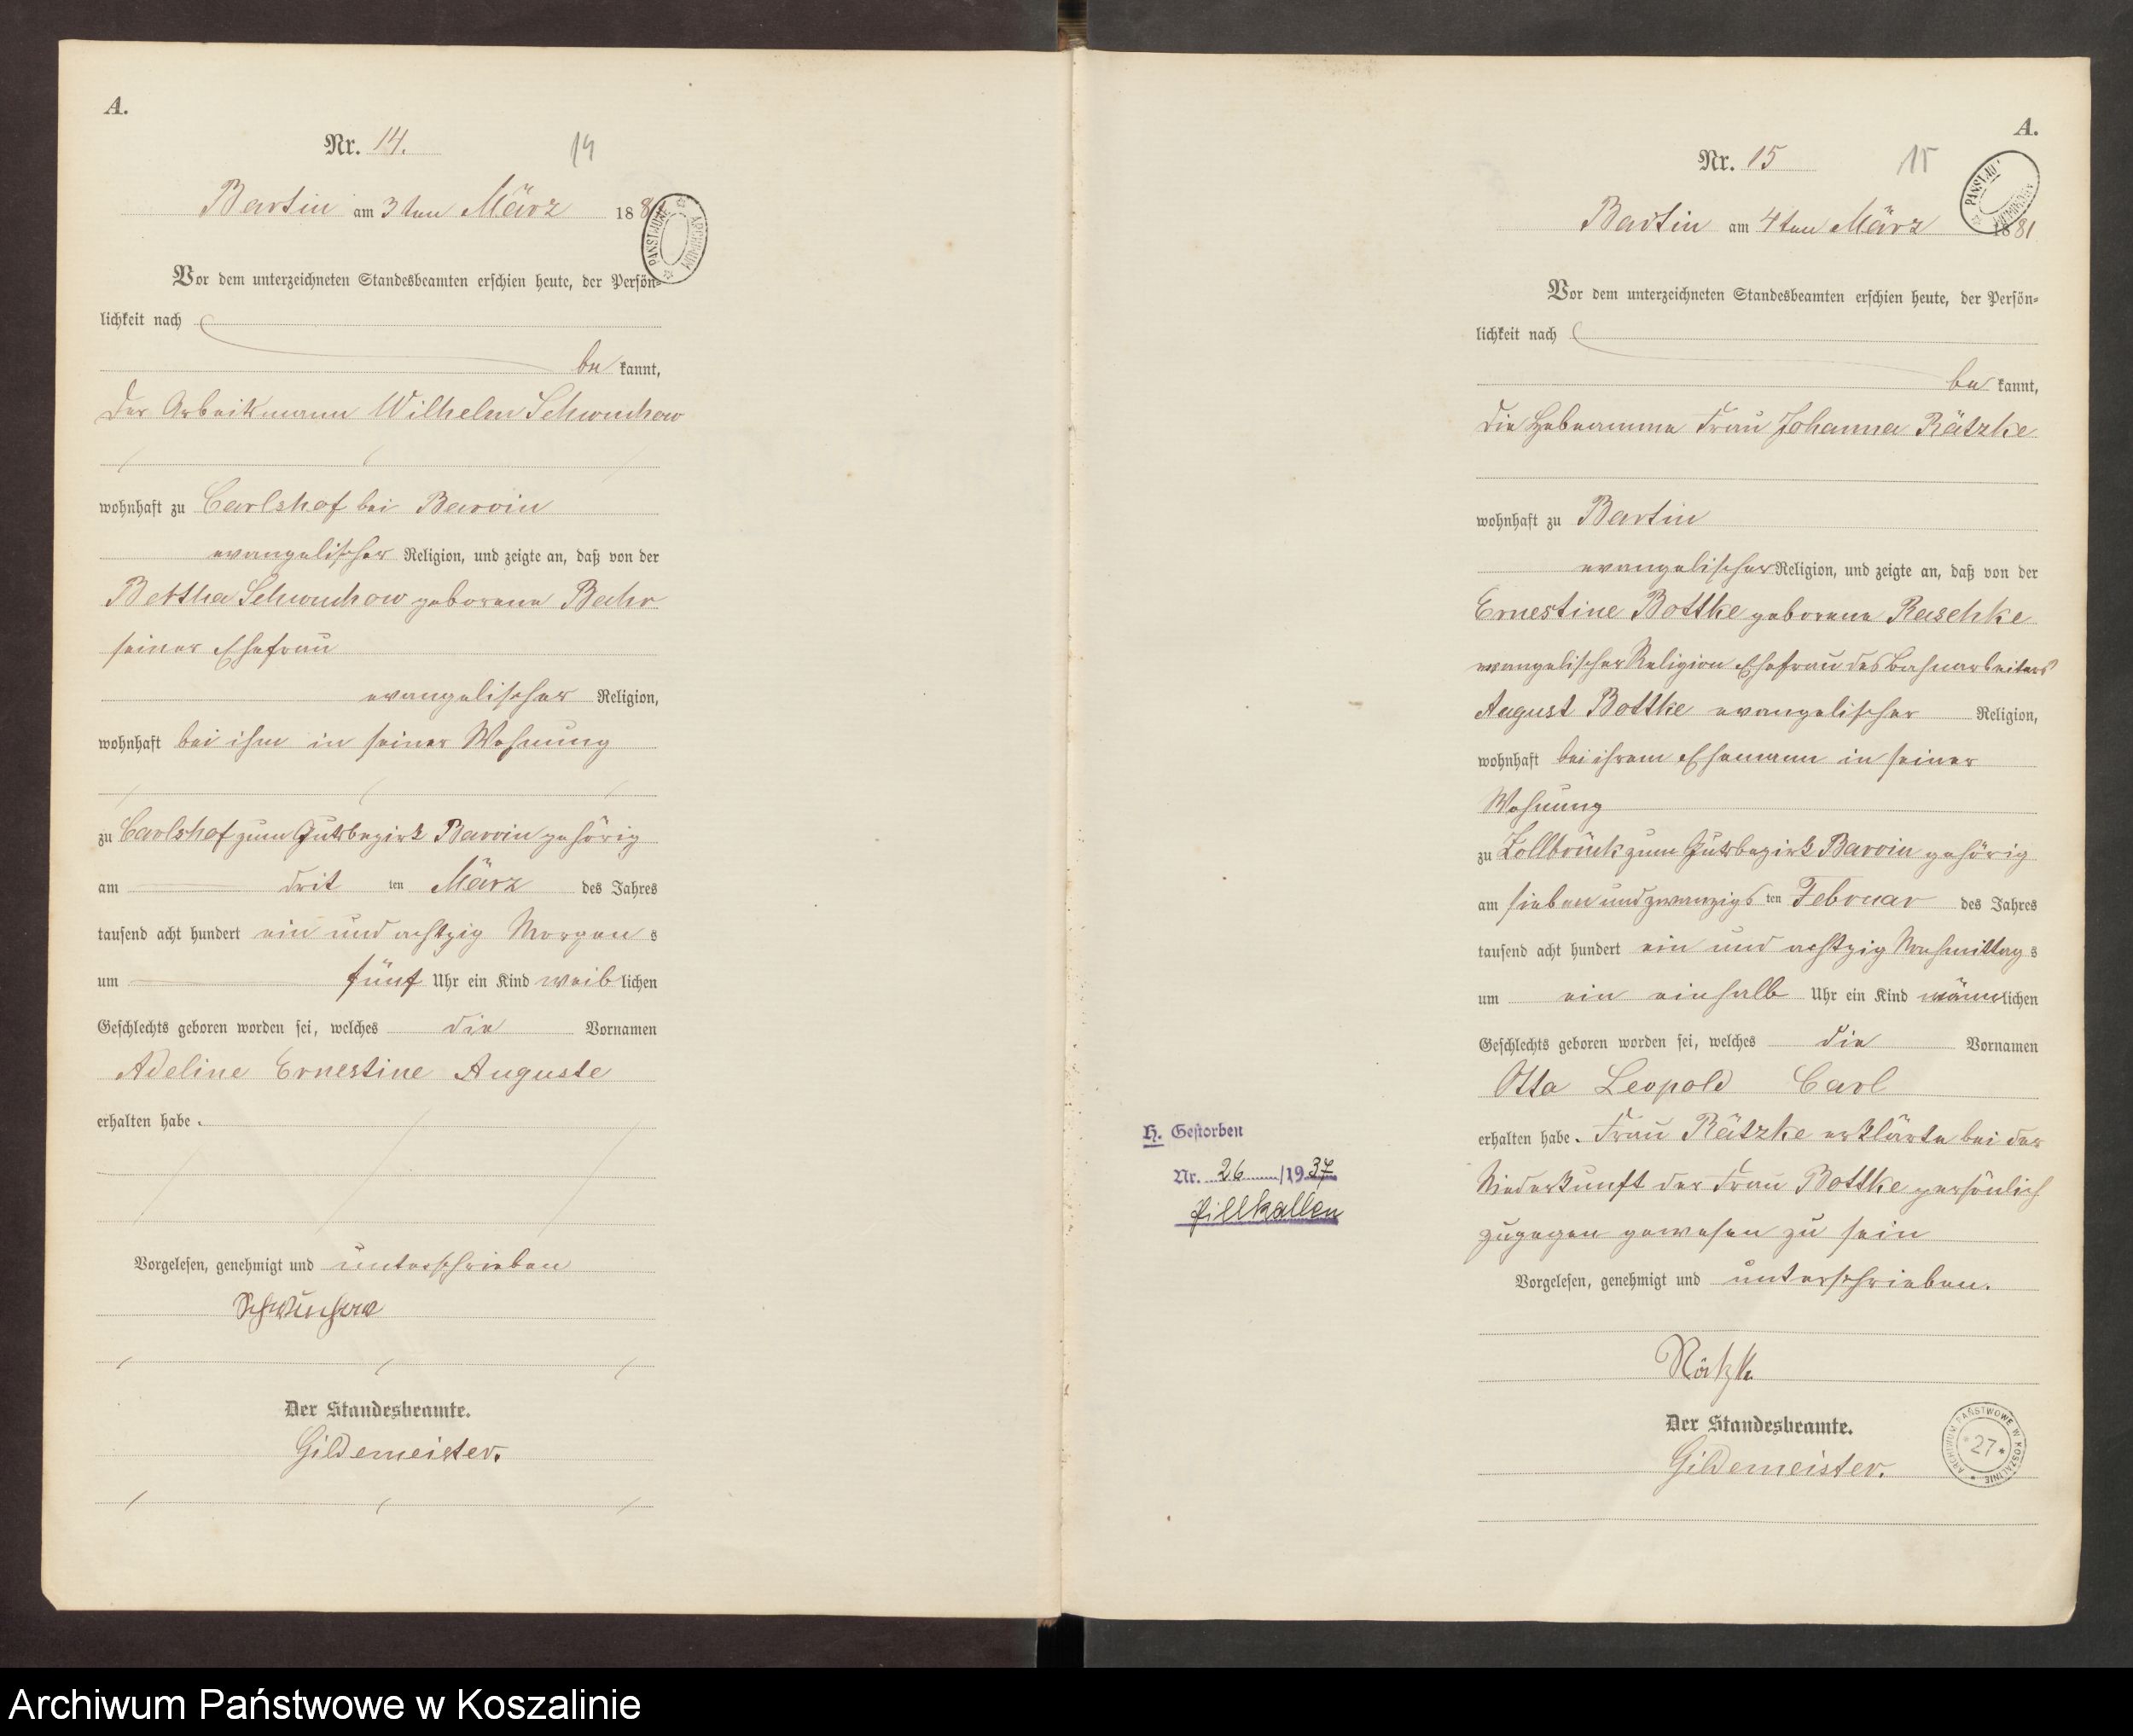 A.
Nr. 14.
14
Bartin am 3ten März 1881
PAŃSTWOWE ARCHIWUM
Vor dem unterzeichneten Standesbeamten erschien heute, der Persön-
lichkeit nach
be kannt,
der Arbeitsmann Wilhelm Schwuchow
wohnhaft zu Carlshof bei Barvin
evangelischer Religion, und zeigte an, daß von der
Bertha Schwuchow geborene Behr
seiner Ehefrau
evangelischer Religion,
wohnhaft bei ihm in seiner Wohnung
zu Carlshof zum Gutsbezirk Barvin gehörig
am drit ten März des Jahres
tausend acht hundert ein und achtzig Morgen s
um fünf Uhr ein Kind weib lichen
Geschlechts geboren worden sei, welches die Vornamen
Adeline Ernestine Auguste
erhalten habe.
Vorgelesen, genehmigt und unterschrieben
Schwuchow
Der Standesbeamte.
Gildemeister.
A.
Nr. 15
15
Bartin am 4ten März 1881
Vor dem unterzeichneten Standesbeamten erschien heute, der Persön-
lichkeit nach
be kannt,
die Hebeamme Frau Johanna Rätzke
wohnhaft zu Bartin
evangelischer Religion, und zeigte an, daß von der
Ernestine Bottke geborene Raschke
evangelischer Religion Ehefrau des Bahnarbeiters
August Bottke evangelischer Religion,
wohnhaft bei ihrem Ehemann in seiner
Wohnung
zu Zollbrück zum Gutsbezirk Barvin gehörig
am sieben und zwanzigs ten Februar des Jahres
tausend acht hundert ein und achtzig Nachmittag s
um ein einhalb Uhr ein Kind männ lichen
Geschlechts geboren worden sei, welches die Vornamen
Otto Leopold Carl
erhalten habe. Frau Rätzke erklärte bei der
Niederkunft der Frau Bottke persönlich
zugegen gewesen zu sein
Vorgelesen, genehmigt und unterschrieben.
Rätzke
Der Standesbeamte.
Gildemeister.
H. Gestorben
Nr. 26 /1937
Pillkallen
ARCHIWUM PAŃSTWOWE W KOSZALINIE
*27*
Archiwum Państwowe w Koszalinie